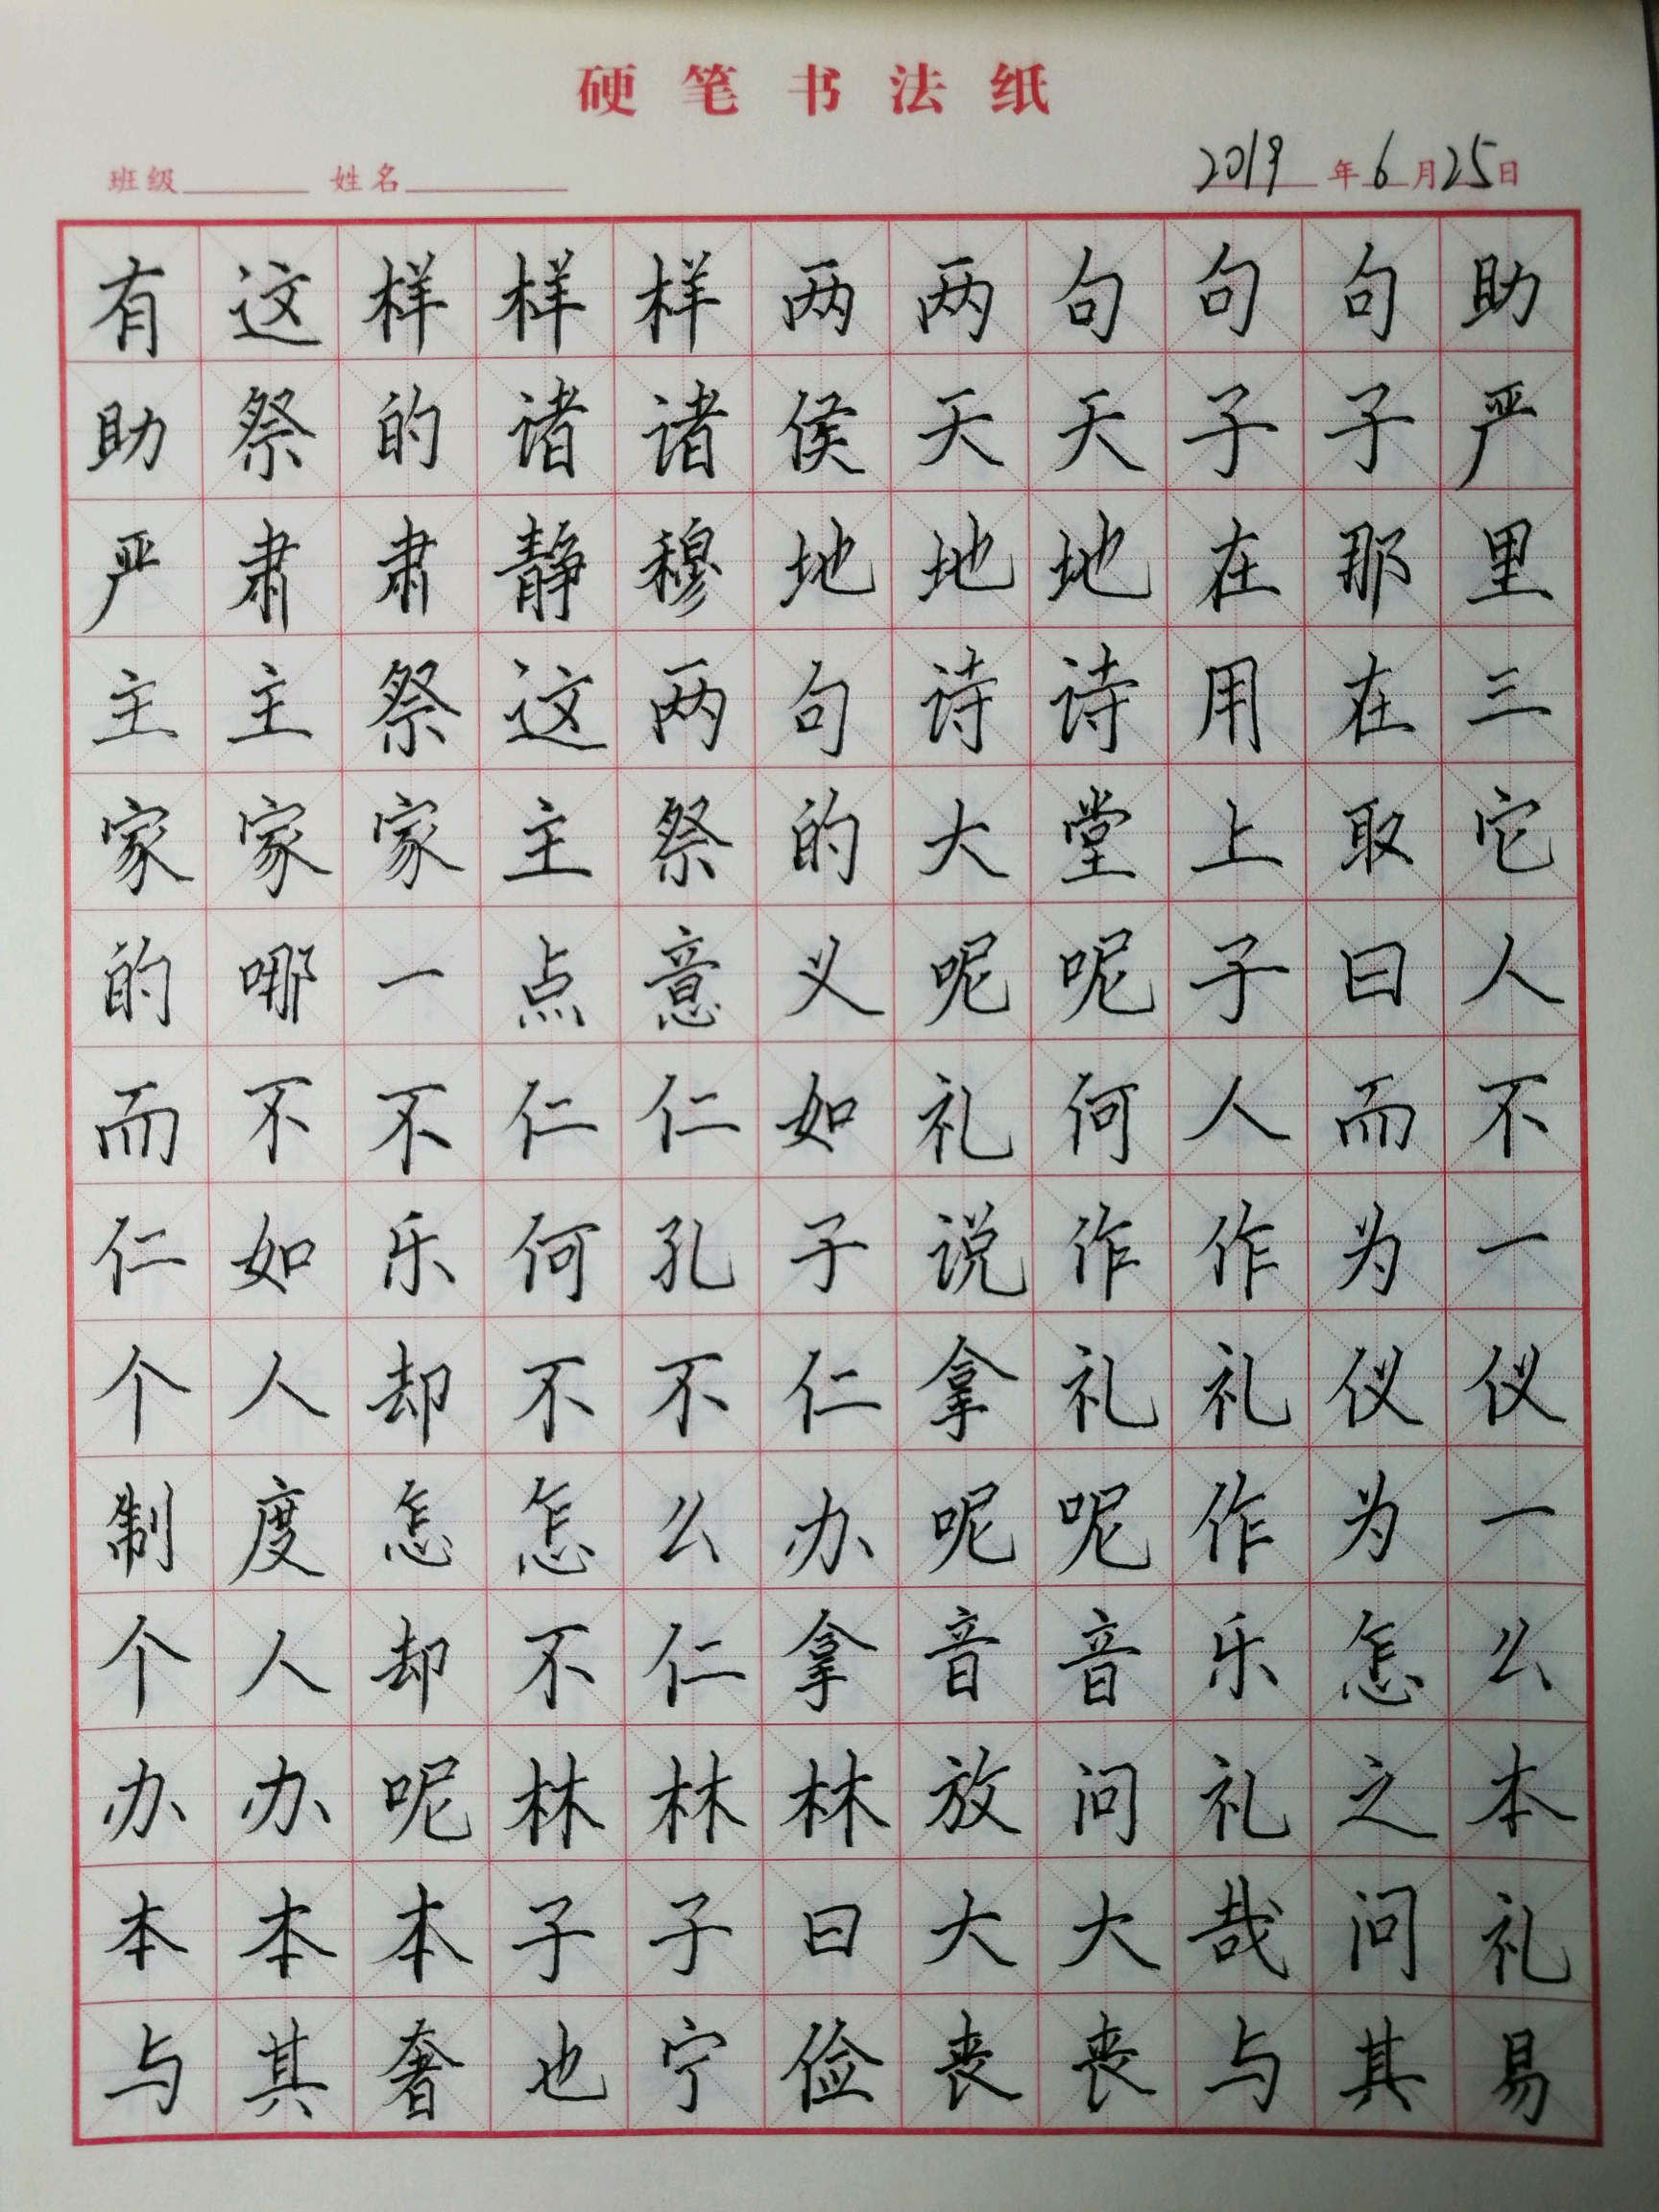 硬笔书法纸
班级 姓名 2019年6月25日
有这样样样两两句句句助
助祭的诸诸侯天天子子严
严肃肃静穆地地地在那里
主主祭这两句诗诗用在三
家家家主祭的大堂上取它
的哪一点意义呢呢子曰人
而不不仁仁如礼何人而不
仁如乐何孔子说作作为一
个人却不不仁拿礼礼仪仪
制度怎怎么办呢呢作为一
个人却不仁拿音音乐怎么
办办呢林林林放问礼之本
本本本子子曰大大哉问礼
与其奢也宁俭丧丧与其易